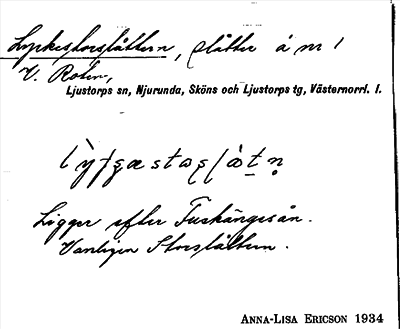 Lyrkestorslåttern, slåtter å m 1
V. Roten,
Ljustorps sn, Njurunda, Sköns och Ljustorps tg, Västernorrl. l.
Ligger efter Tuskängesån.
Vanligen Storslåttern.
ANNA-LISA ERICSON 1934